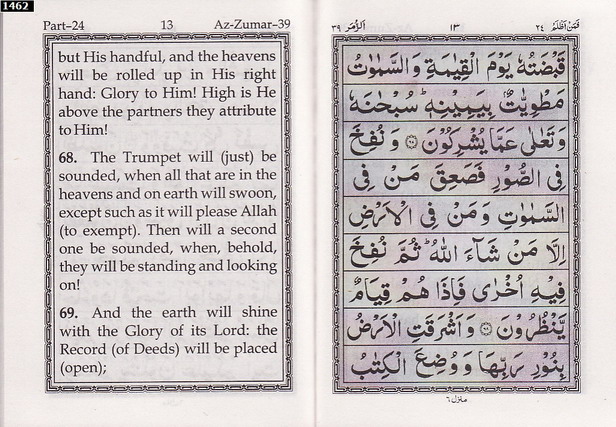 1462
Part–24 13 Az-Zumar–39
but His handful, and the heavens
will be rolled up in His right
hand: Glory to Him! High is He
above the partners they attribute
to Him!
68. The Trumpet will (just) be
sounded, when all that are in the
heavens and on earth will swoon,
except such as it will please Allah
(to exempt). Then will a second
one be sounded, when, behold,
they will be standing and looking
on!
69. And the earth will shine
with the Glory of its Lord: the
Record (of Deeds) will be placed
(open);
فَمَنْ اَظْلَمُ ٢٤ ١٣ اَلزُّمَر ٣٩
قَبْضَتُهٗ يَوْمَ الْقِيٰمَةِ وَالسَّمٰوٰتُ
مَطْوِيّٰتٌۢ بِيَمِيْنِهٖ ؕ سُبْحٰنَهٗ
وَتَعٰلٰى عَمَّا يُشْرِكُوْنَ ۝٦٧ وَنُفِخَ
فِى الصُّوْرِ فَصَعِقَ مَنْ فِى
السَّمٰوٰتِ وَمَنْ فِى الْاَرْضِ
اِلَّا مَنْ شَآءَ اللّٰهُ ؕ ثُمَّ نُفِخَ
فِيْهِ اُخْرٰى فَاِذَا هُمْ قِيَامٌ
يَّنْظُرُوْنَ ۝٦٨ وَاَشْرَقَتِ الْاَرْضُ
بِنُوْرِ رَبِّهَا وَوُضِعَ الْكِتٰبُ
منزل ٦